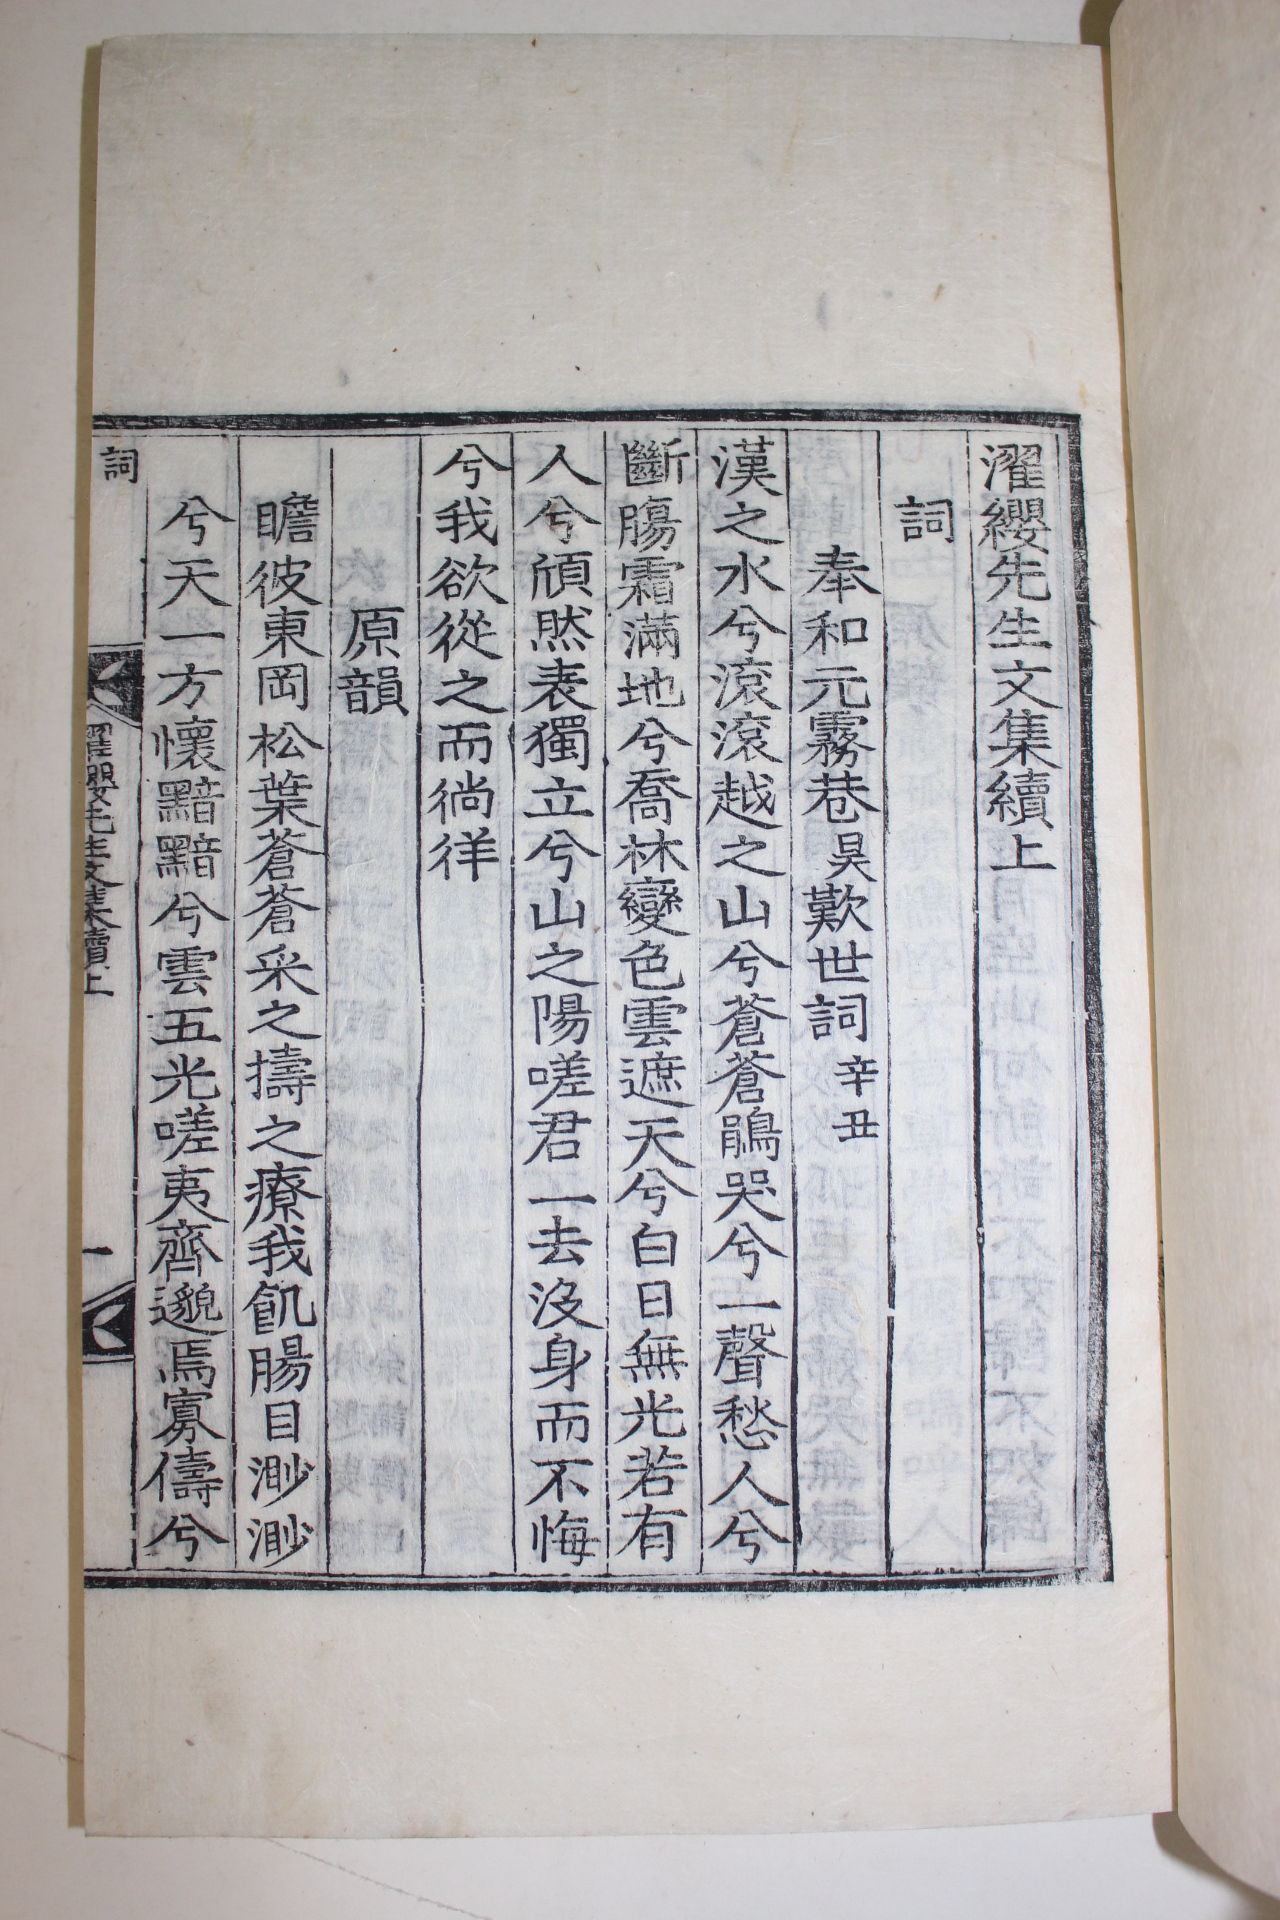 濯纓先生文集續上
詞
奉和元霧巷昊歎世詞辛丑
漢之水兮滾滾越之山兮蒼蒼鵑哭兮一聲愁人兮
斷膓霜滿地兮喬林變色雲遮天兮白日無光若有
人兮頎然表獨立兮山之陽嗟君一去沒身而不悔
兮我欲從之而徜徉
原韻
瞻彼東岡松葉蒼蒼采之擣之療我飢腸目渺渺
兮天一方懷黯黯兮雲五光嗟夷齊邈焉寡儔兮
詞
濯纓先生文集續上
一